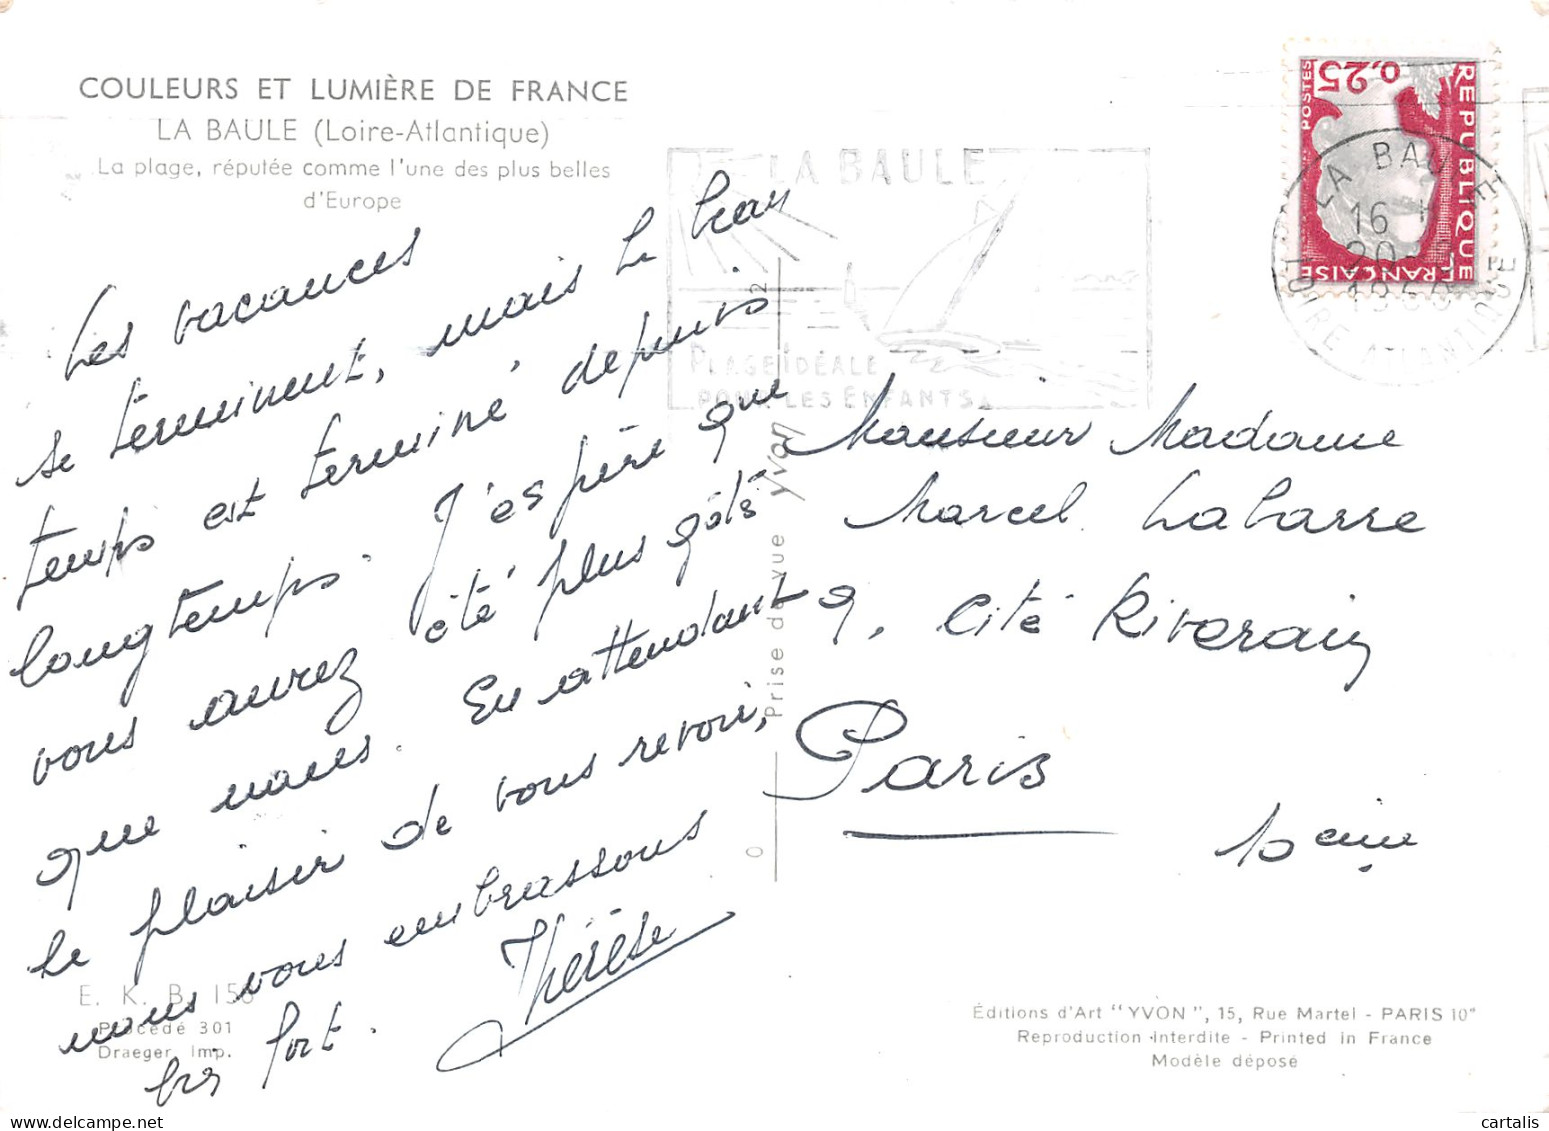 COULEURS ET LUMIÈRE DE FRANCE
LA BAULE (Loire-Atlantique)
La plage, réputée comme l'une des plus belles
d'Europe
Les vacances
se terminent, mais le beau
temps est terminé depuis
longtemps. J'espère que
vous aurez été plus gâtés
que nous. En attendant
le plaisir de vous revoir,
nous vous embrassons
bien fort.
Thérèse
E. K. B. 156
Procédé 301
Draeger, Imp.
Prise de vue yvon
LA BAULE
PLAGE IDÉALE
POUR LES ENFANTS
POSTES
0,25
REPUBLIQUE
FRANÇAISE
LA BAULE
16 H
20
1960
LOIRE ATLANTIQUE
Monsieur Madame
Marcel Labarre
9, Cité Riverain
Paris
10eme
Éditions d'Art "YVON", 15, Rue Martel - PARIS 10e
Reproduction Interdite - Printed in France
Modèle déposé
cartalis